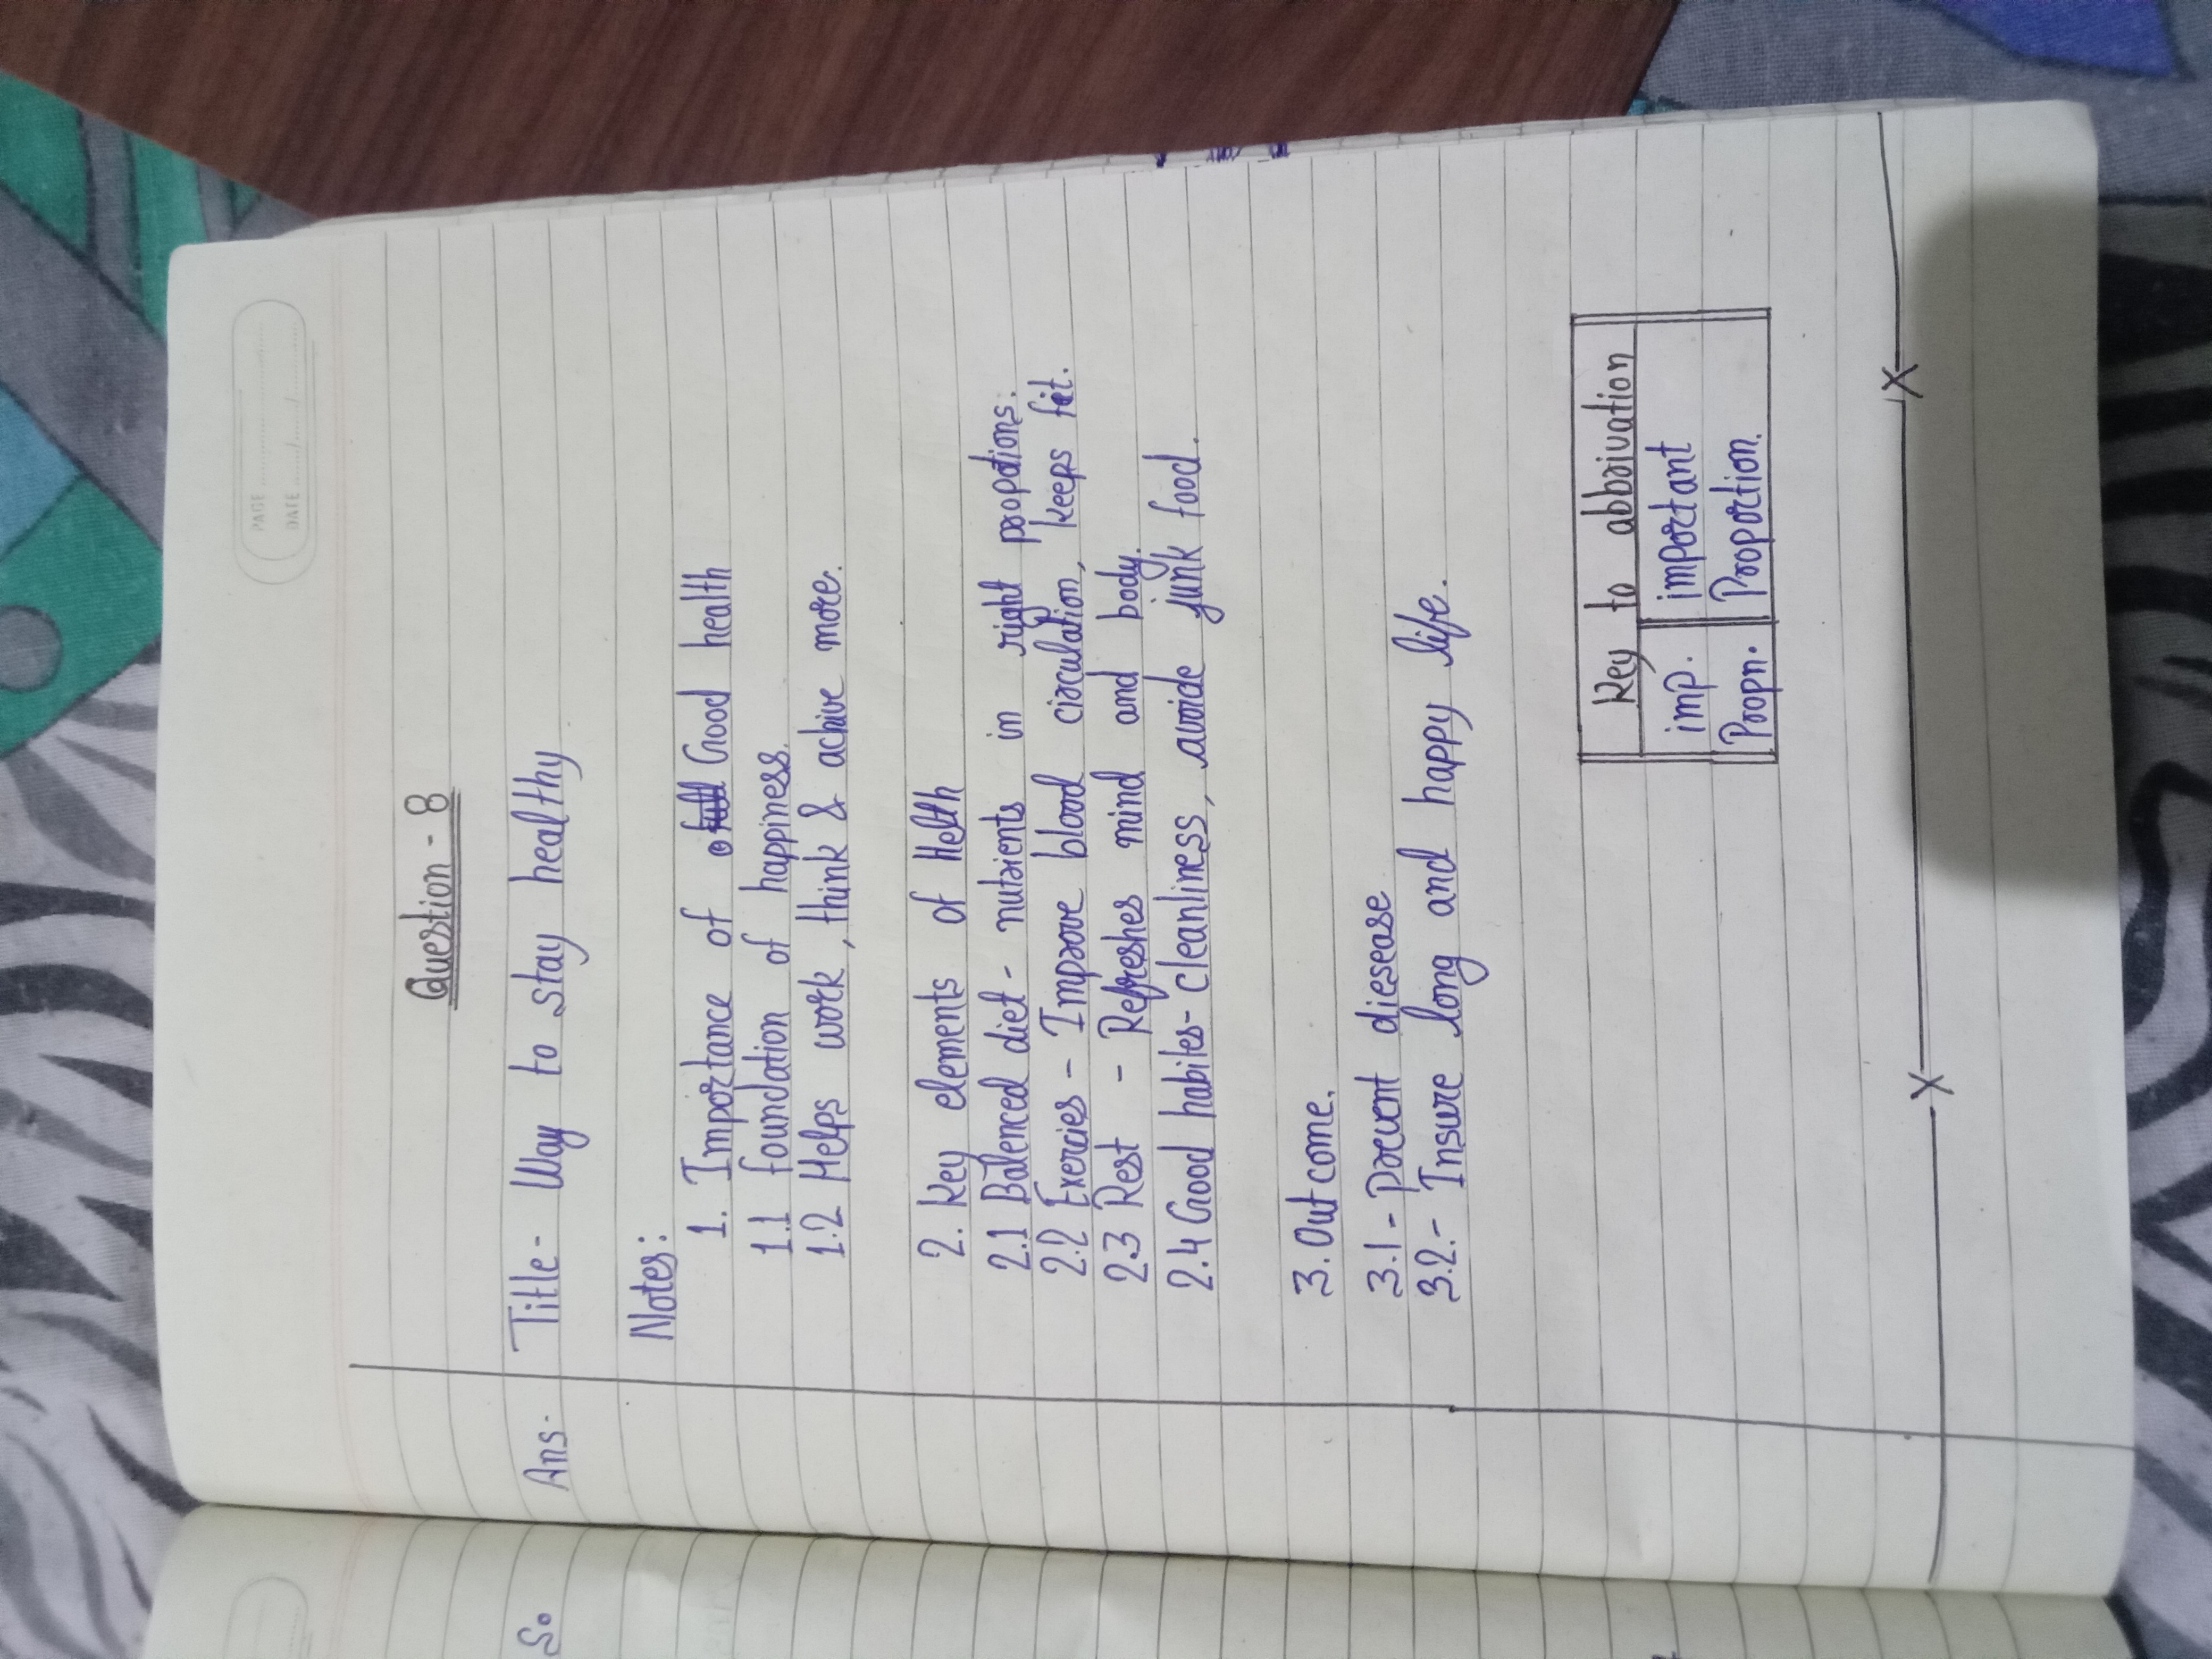 PAGE
DATE
Question - 8
So
Ans- Title- Way to stay healthy
Notes:
1. Importance of Good health
1.1 foundation of happiness.
1.2 Helps work, think & achive more.
2. Key elements of Helth
2.1 Balenced diet - nutrients in right propotions.
2.2 Exercies - Improve blood circulation, keeps fit.
2.3 Rest - Refreshes mind and body.
2.4 Good habites- cleanliness, avoide junk food.
3. Outcome.
3.1 - Prevent diesease
3.2.- Insure long and happy life.
Key to abbrivation
imp. important
Propn. Proportion.